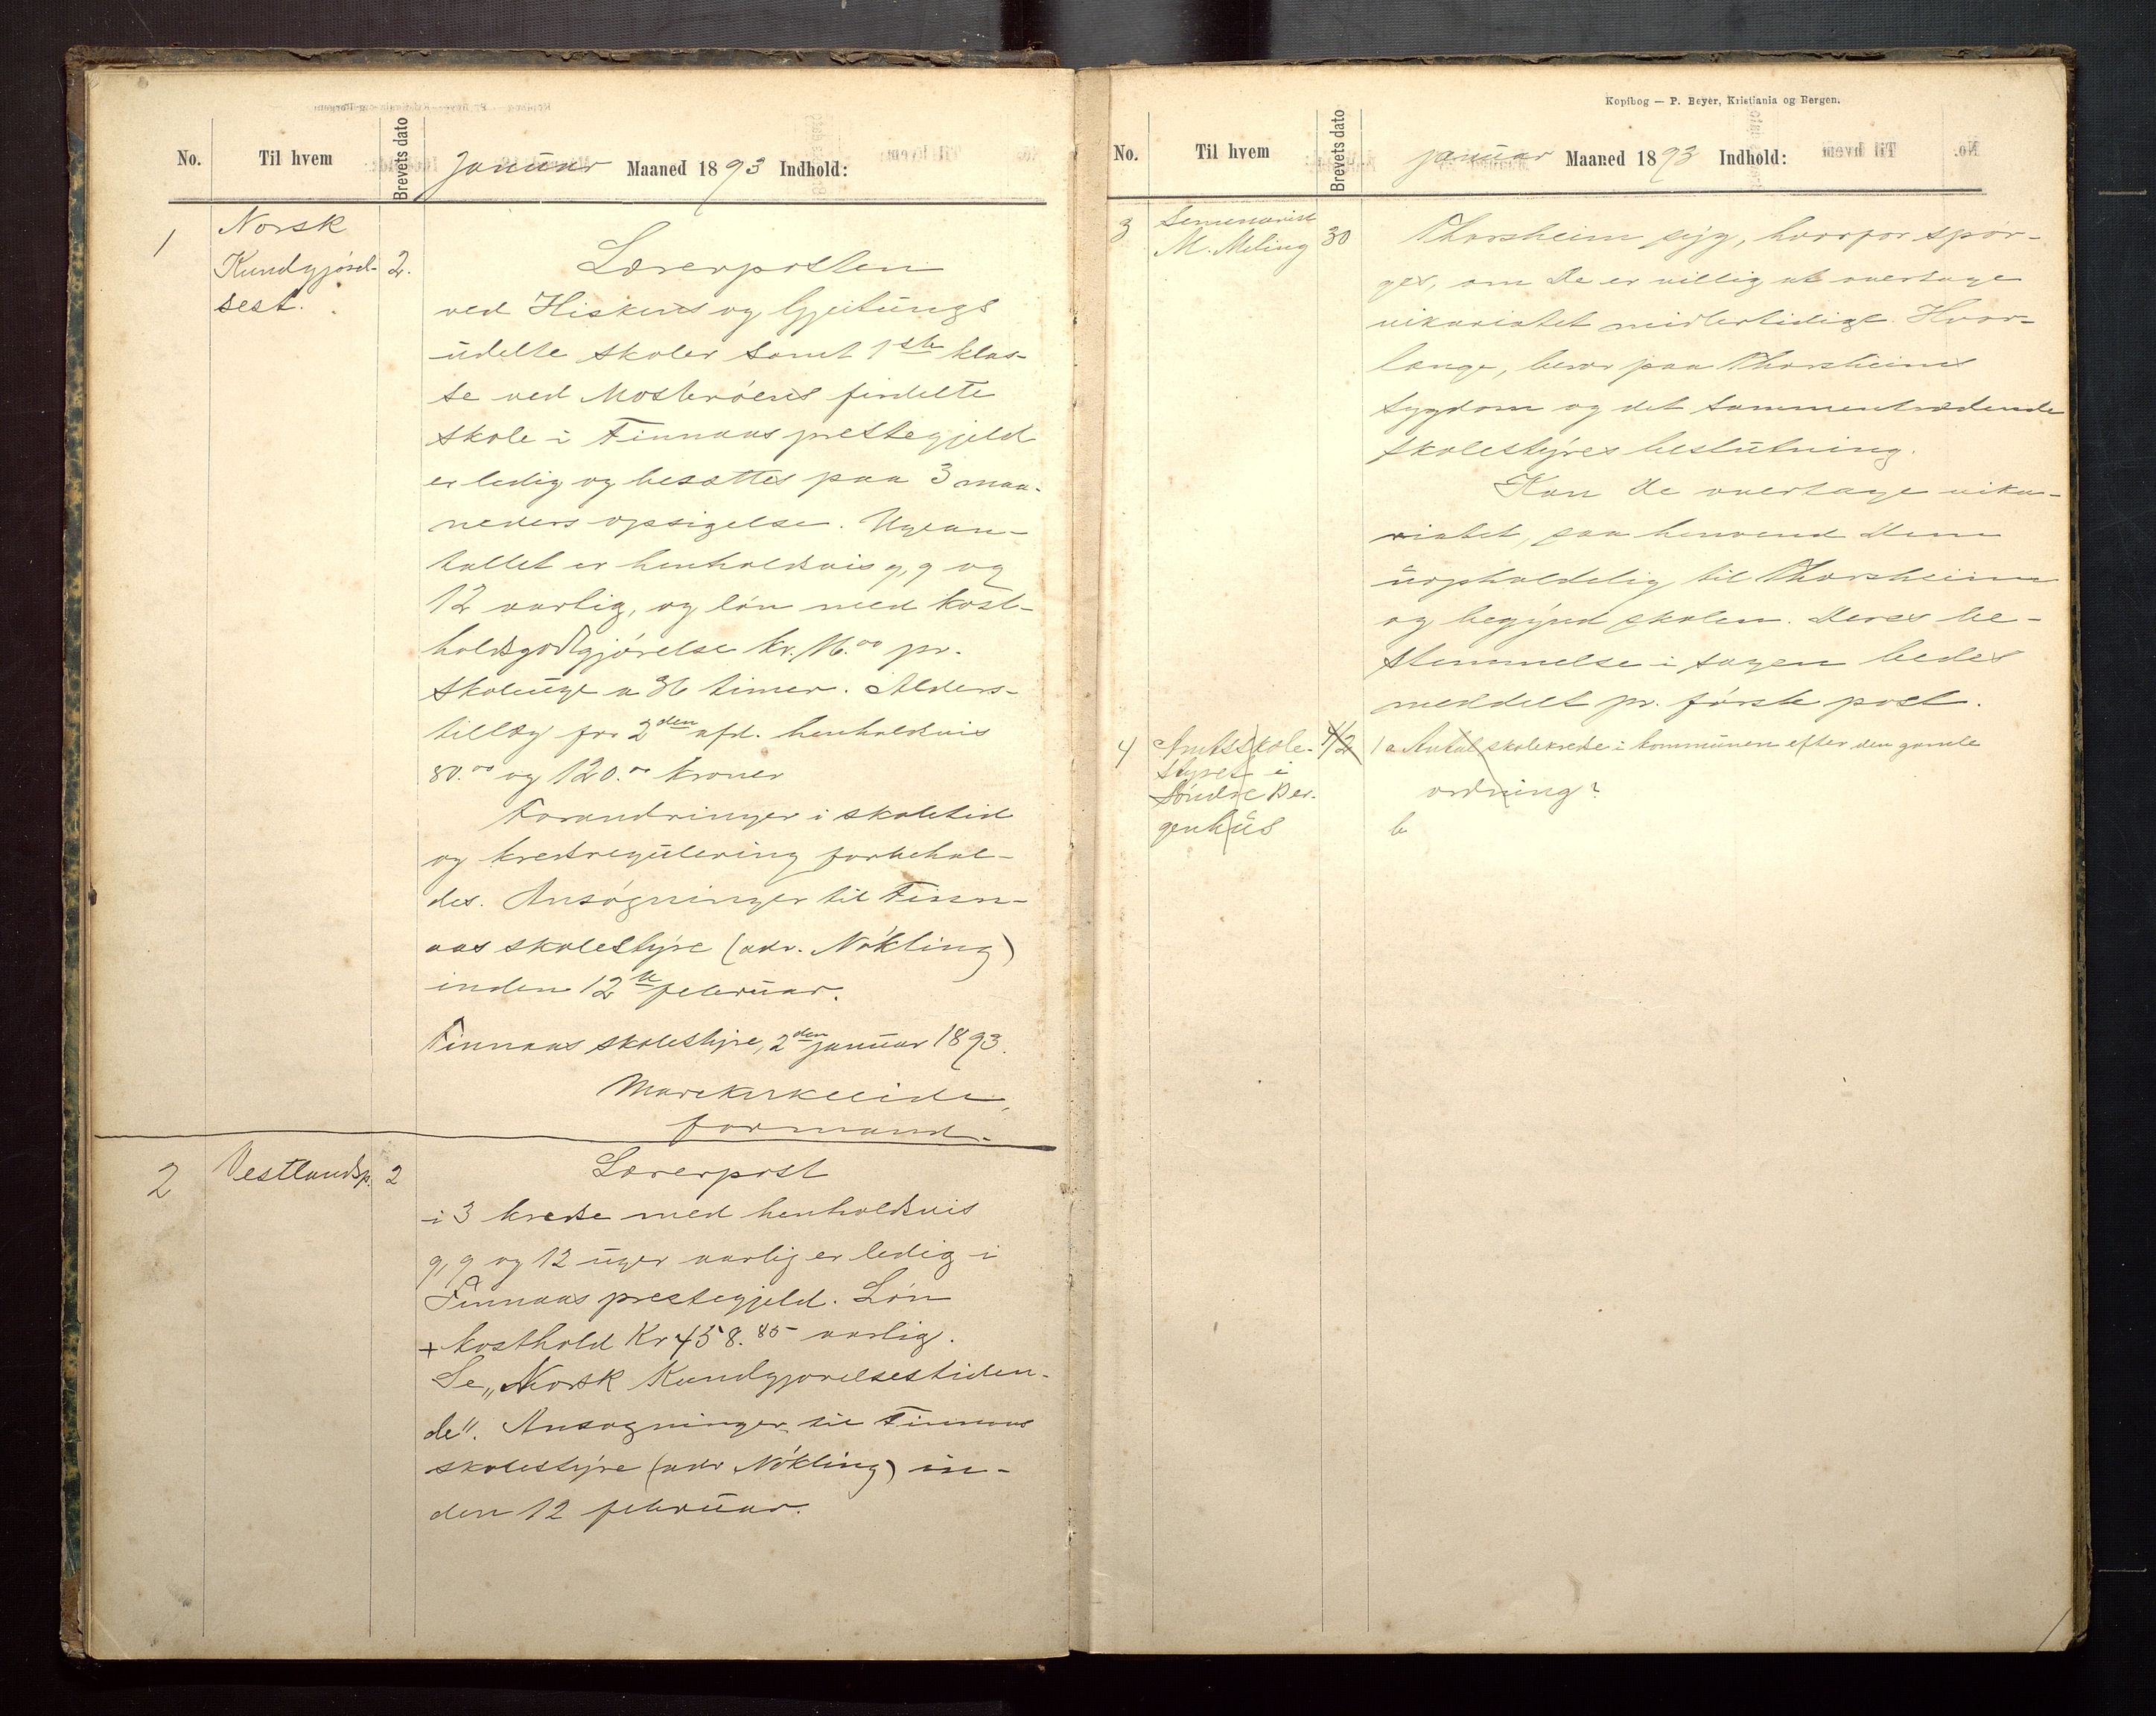 No.
Til hvem
Brevets dato
Januar Maaned 1893 Indhold:
1
Norsk
Kundgjörel-
sest.
2.
Lærerposten
ved Hiskens og Gjeitungs
udelte skoler samt 1ste klas-
se ved Mosterøens firdelte
skole i Finnaas prestegjeld
er ledig og besættes paa 3 maa-
neders opsigelse. Ugean-
tallet er henholdsvis 9, 9 og
12 aarlig, og lön med kost-
holdsgodtgjörelse kr. 16.00 pr.
skoleuge a 36 timer. Alders-
tillæg for 2den afd. henholdsvis
80.00 og 120.00 kroner
Forandringer i skoletid
og kredsregulering forbehol-
des. Ansögninger til Finn-
aas skolestyre (adr. Nökling)
inden 12te februar.
Finnaas skolestyre, 2den januar 1893.
formand.
2
Vestlandsp.
2
Lærerpost
i 3 kredse med henholdsvis
9, 9 og 12 uger aarlig er ledig i
Finnaas prestegjeld. Lön
+ kosthold Kr 458.85 aarlig.
Se „Norsk Kundgjorelsestiden-
de". Ansogninger til Finnaas
skolestyre (adr Nökling) in-
den 12 februar.
Kopibog — P. Beyer, Kristiania og Bergen.
No.
Til hvem
Brevets dato
januar Maaned 1893 Indhold:
3
Seminarist
M. Meling
30
Thorsheim syg, hvorfor spör-
ges, om De er villig at overtage
vikariatet midlertidigt. Hvor-
længe, beror paa Thorsheims
sygdom og det sammentrædende
skolestyres beslutning.
Kan De overtage vika-
riatet, saa henvend Dem
uopholdelig til Thorsheim
og begynd skolen. Deres be-
stemmelse i sagen bedes
meddelt pr. förste post.
4
Amtsskole-
styret i
Söndre Ber-
genhus
4/2
1 a Antal skolekredse i kommunen efter den gamle
ordning?
b